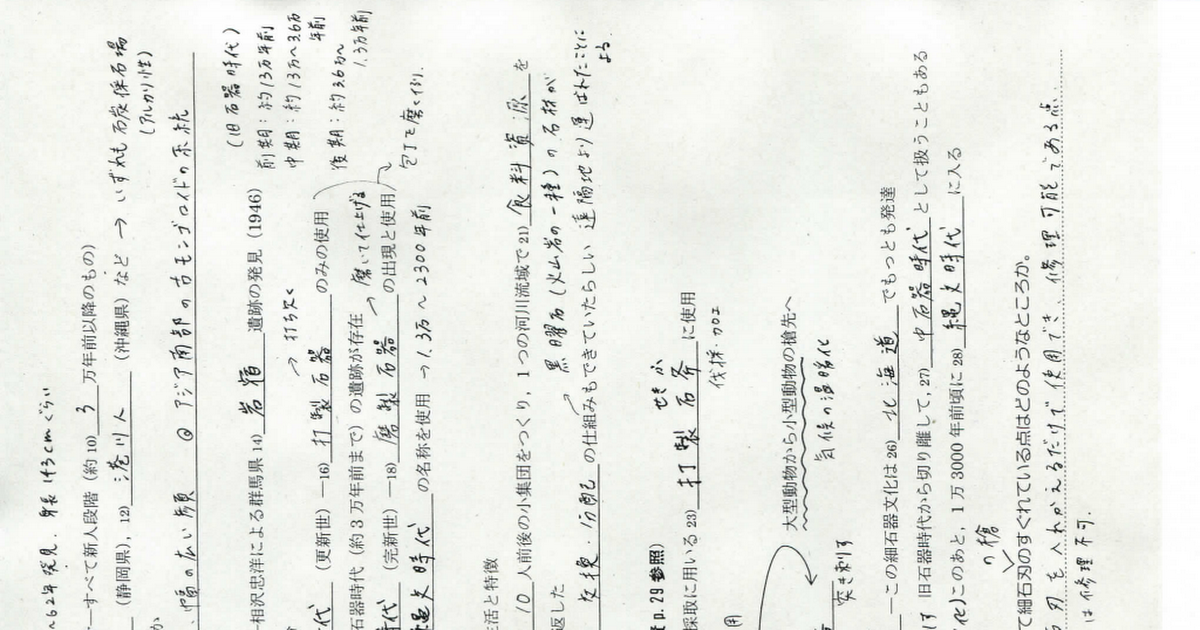 ~62年発見. 身長 143cmぐらい
すべて新人段階 (約 10) 3 万年前以降のもの)
(静岡県), 12) 港川人 (沖縄県) など → いずれも石灰採石場
(アルカリ性)
幅の広い顔 @ アジア南部の古モンゴロイドの系統
(旧石器時代)
前期：約13万年前
中期：約13万~3.6万年前
後期：約3.6万~1.3万年前
相沢忠洋による群馬県 14) 岩宿 遺跡の発見 (1946)
→ 打ち欠く
(更新世) ―16) 打製石器 のみの使用
石器時代 (約 3 万年前まで) の遺跡が存在
→ 磨いて仕上げる
(完新世) ―18) 磨製石器 の出現と使用
包丁を磨くイメ).
縄文時代 の名称を使用 → 1.3万~2300年前
生活と特徴
10 人前後の小集団をつくり, 1 つの河川流域で 21) 食料資源 を
返した
黒曜石 (火山岩の一種) の石材が
交換・分配 の仕組みもできていたらしい 遠隔地より運ばれたことによる
p. 29 参照)
せきふ
採取に用いる 23) 打製石斧 に使用
伐採・加工
大型動物から小型動物の槍先へ
気候の温暖化
突き刺す
―この細石器文化は 26) 北海道 でもっとも発達
旧石器時代から切り離して, 27) 中石器時代 として扱うこともある
化)このあと, 1 万 3000 年前頃に 28) 縄文時代 に入る
の槍
て細石刃のすぐれている点はどのようなところか。
刃を入れかえるだけで使用でき、修理可能である点.
は修理不可.